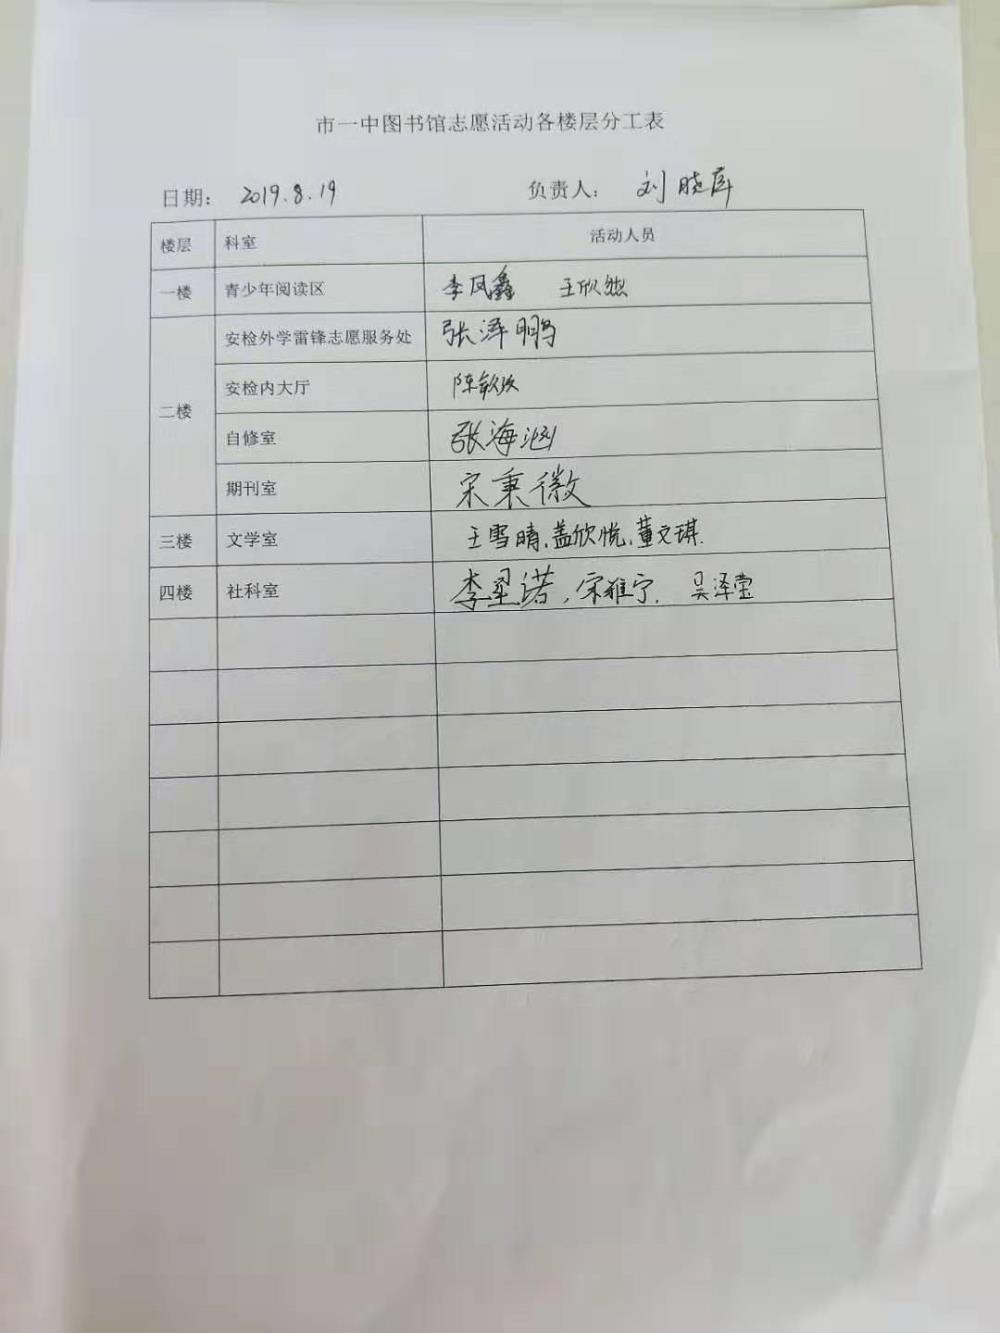 市一中图书馆志愿活动各楼层分工表
日期： 2019.8.19 负责人： 刘晓库
楼层 科室 活动人员
一楼 青少年阅读区 李凤鑫 王欣然
二楼
安检外学雷锋志愿服务处 张泽鹏
安检内大厅 陈
自修室 张海
期刊室 宋秉徽
三楼 文学室 王雪晴,盖欣悦,董文琪.
四楼 社科室 李翠诺,宋雅宁. 吴泽莹